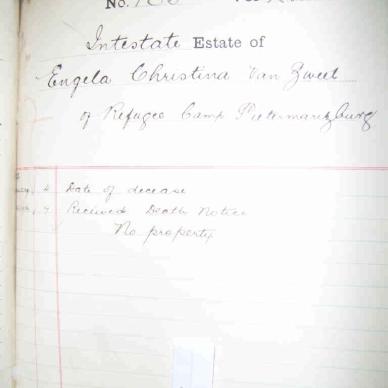 No.
Intestate Estate of
Engela Christina Van Zweel
of Refugee Camp Pietermaritzburg
4 Date of decease
7 Received Death Notice
No property